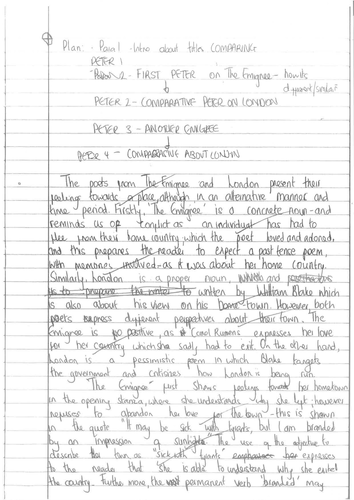 Plan: · Para 1 - Intro about titles COMPARING
PETER 1
FIRST PETER on The Emigree - how its
different/similar?
PETER 2 - COMPARATIVE PETER ON LONDON
PETER 3 - ANOTHER EMIGREE
PETER 4 - COMPARATIVE ABOUT LONDON
The poets from The Emigree and London present their
feelings towards a place, although, in an alternative manner and
time period. Firstly, 'The Emigree' is a concrete noun - and
reminds us of conflict as an individual has had to
flee from their home country which the poet loved and adored,
and this prepares the reader to expect a past tense poem,
with memories involved - as it was about her home country.
Similarly, London is a proper noun,
written by William Blake which
is also about his view on his home town. However, both
poets express different perspectives about their town. The
Emigree is positive, as Carol Rumens expresses her love
for her country which she sadly had to exit. On the other hand,
London is a pessimistic poem in which Blake targets
the government and critisises how London is being run.
'The Emigree' first shows feelings toward her hometown
in the opening stanza, where she understands why she left, however
refuses to abandon her love for the town - this is shown
in the quote "It may be sick with tyrants, but I am branded
by an impression of sunlight". The use of the adjective to
describe the town as "sick with tyrants" expresses
to the reader that she is able to understand why she exited
the country. Furthermore, the permanent verb 'branded' may